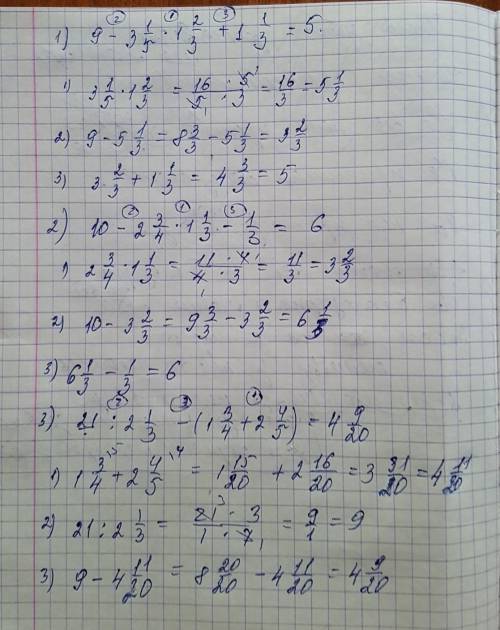 1) 9 - 3 1/5 · 1 2/3 + 1 1/3 = 5.
1) 3 1/5 · 1 2/3 = 16 · 5 / 5 · 3 = 16/3 = 5 1/3
2) 9 - 5 1/3 = 8 3/3 - 5 1/3 = 3 2/3
3) 3 2/3 + 1 1/3 = 4 3/3 = 5
2) 10 - 2 3/4 · 1 1/3 - 1/3 = 6
1) 2 3/4 · 1 1/3 = 11 · 4 / 4 · 3 = 11/3 = 3 2/3
2) 10 - 3 2/3 = 9 3/3 - 3 2/3 = 6 1/3
3) 6 1/3 - 1/3 = 6
3) 21 : 2 1/3 - (1 3/4 + 2 4/5) = 4 9/20
1) 1 3/4 + 2 4/5 = 1 15/20 + 2 16/20 = 3 31/20 = 4 11/20
2) 21 : 2 1/3 = 21 · 3 / 1 · 7 = 9/1 = 9
3) 9 - 4 11/20 = 8 20/20 - 4 11/20 = 4 9/20